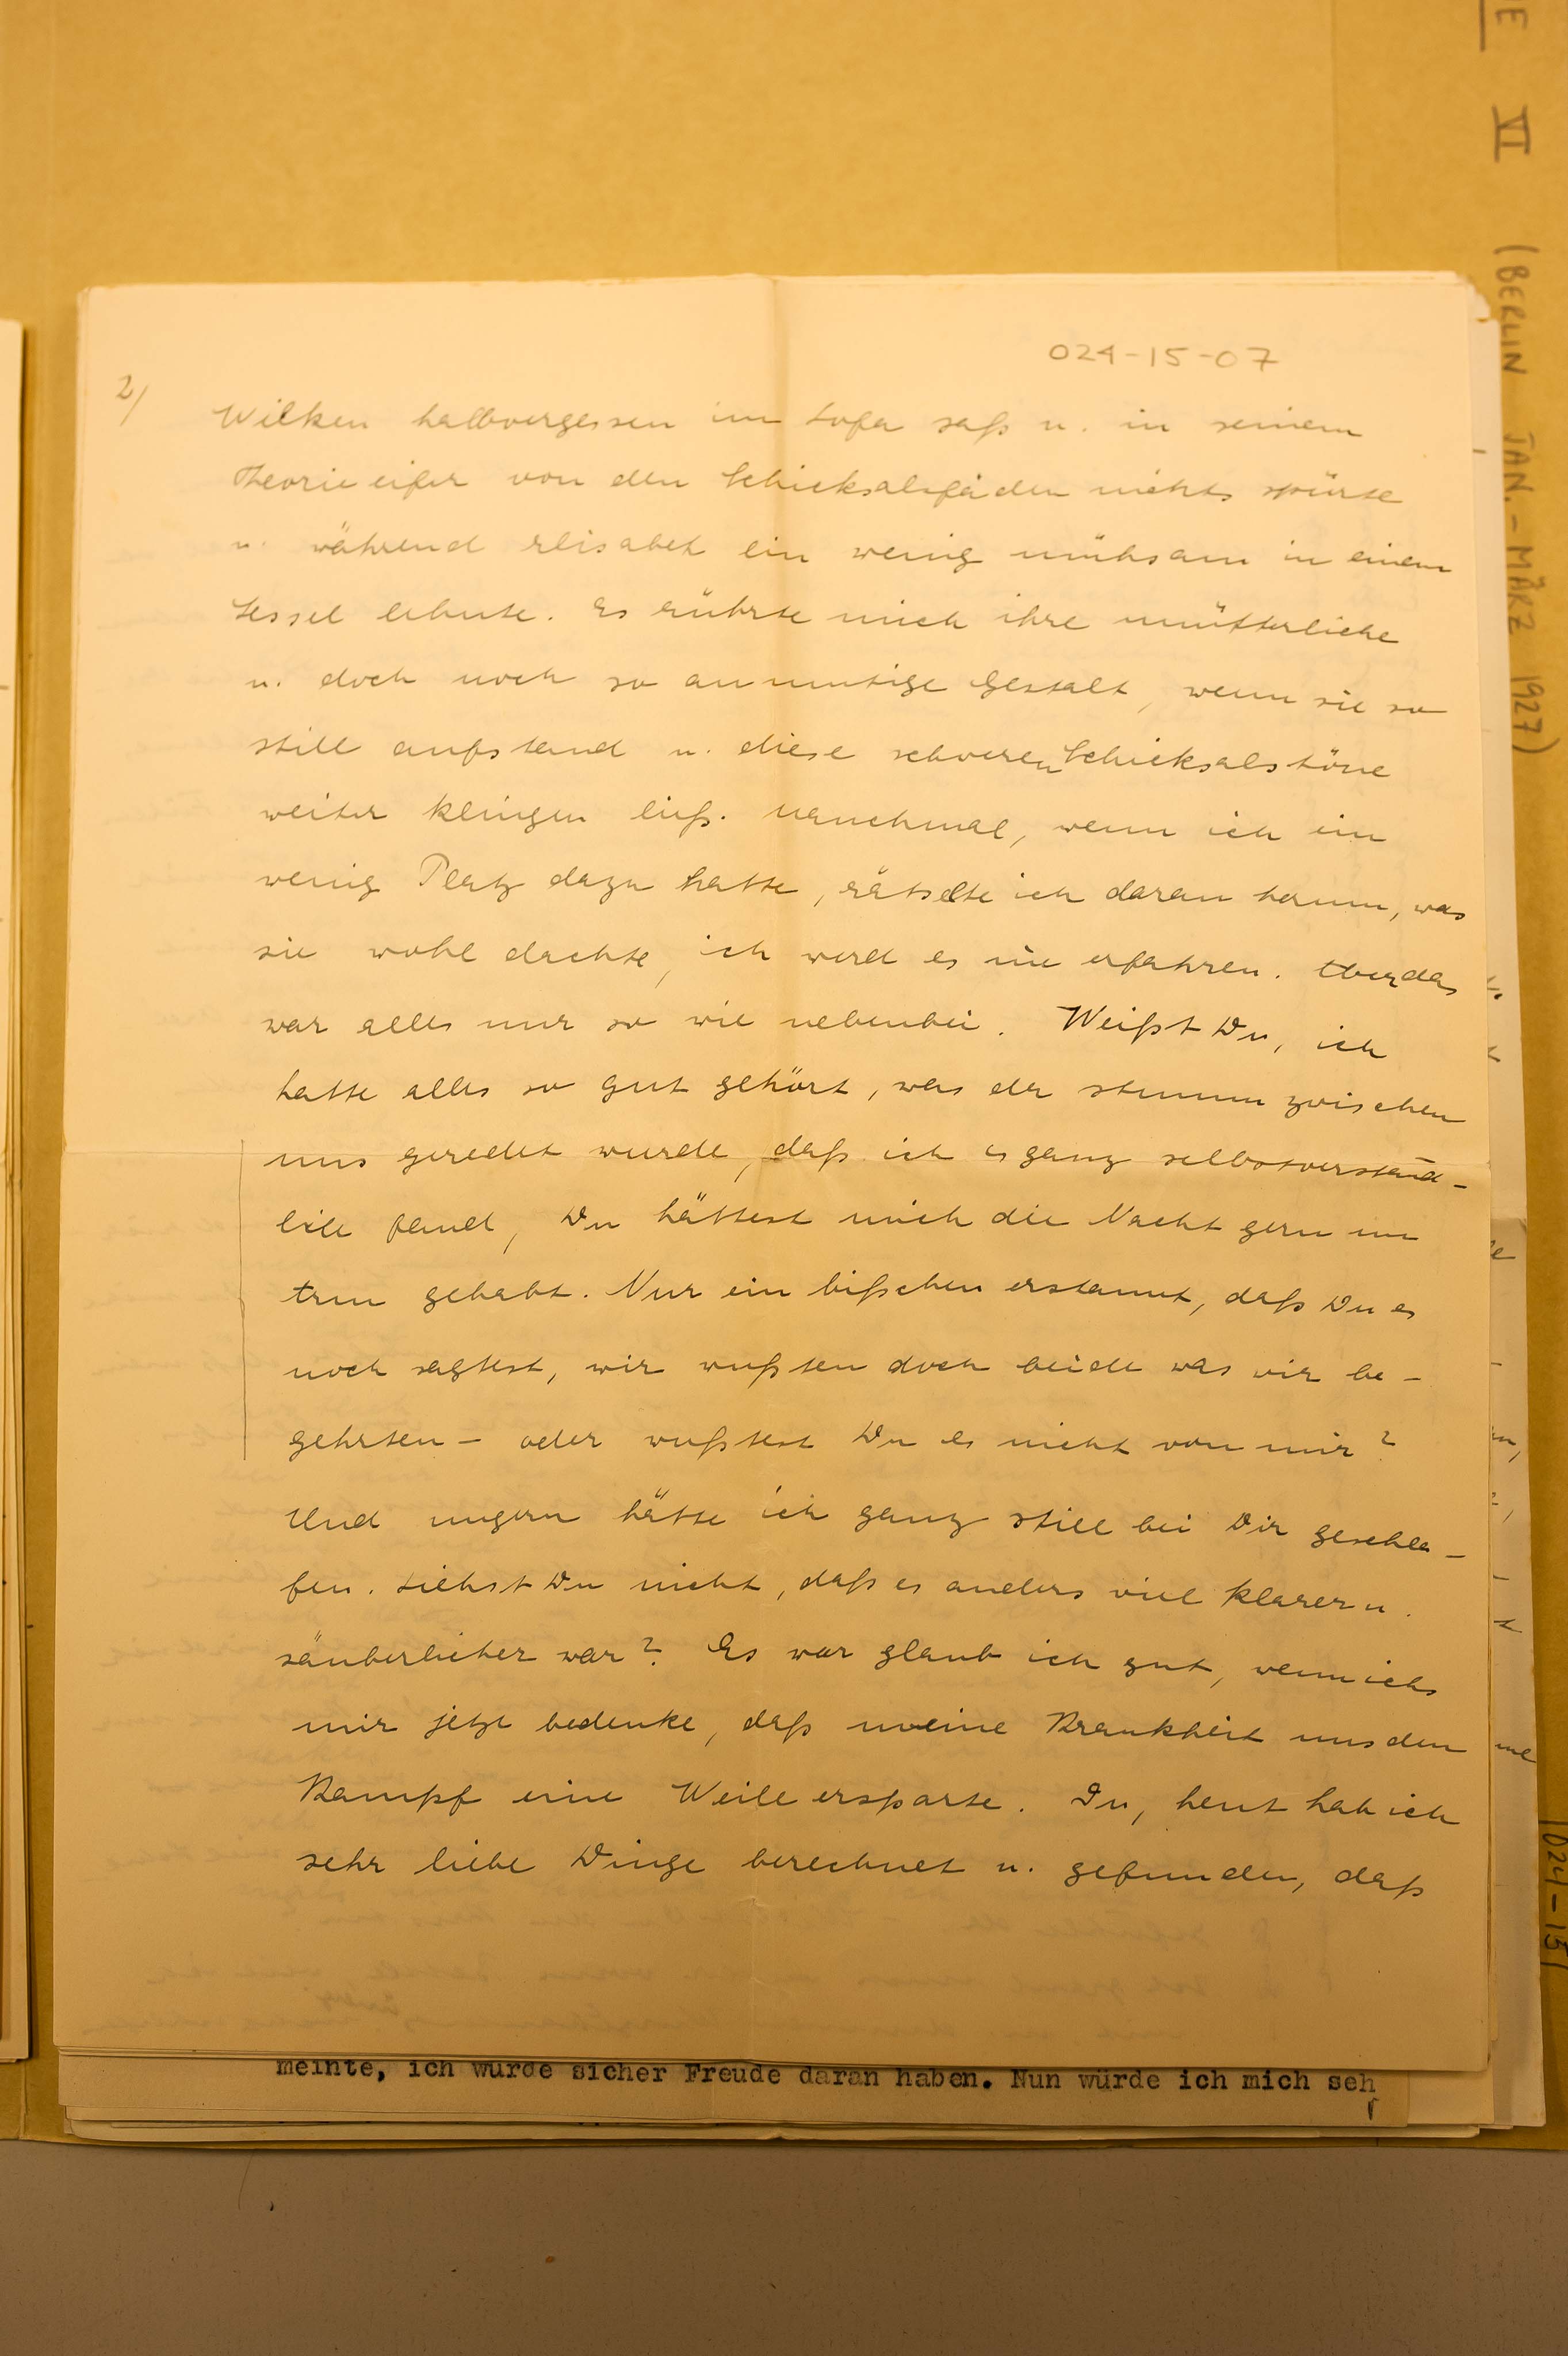 024-15-07
2/
Wilken halbvergessen im Sofa saß u. in seinem
Theorieeifer von den Schicksalsfäden nichts spürte
u. während Elisabet ein wenig mühsam in einem
Sessel lehnte. Es rührte mich ihre mütterliche
u. doch noch so anmutige Gestalt, wenn sie so
still aufstand u. diese schweren Schicksalstöne
weiter klingen ließ. Manchmal, wenn ich ein
wenig Platz dazu hatte, rätselte ich daran herum, was
sie wohl dachte, ich werd es nie erfahren. Aber das
war alles nur so wie nebenbei. Weißt Du, ich
hatte alles so gut gehört, was da stumm zwischen
uns geredet wurde, daß ich es ganz selbstverständ-
lich fand, Du hättest mich die Nacht gern im
Arm gehabt. Nur ein bißchen erstaunt, daß Du es
noch sagtest, wir wußten doch beide was wir be-
gehrten - oder wußtest Du es nicht von mir?
Und ungern hätte ich ganz still bei Dir geschla-
fen. Siehst Du nicht, daß es anders viel klarer u.
säuberlicher war? Es war glaub ich gut, wenn ichs
mir jetzt bedenke, daß meine Krankheit uns den
Kampf eine Weile ersparte. Du, heut hab ich
sehr liebe Dinge berechnet u. gefunden, daß
meinte, ich würde sicher Freude daran haben. Nun würde ich mich seh
r
E VI (BERLIN JAN.-MÄRZ 1927)
024-15